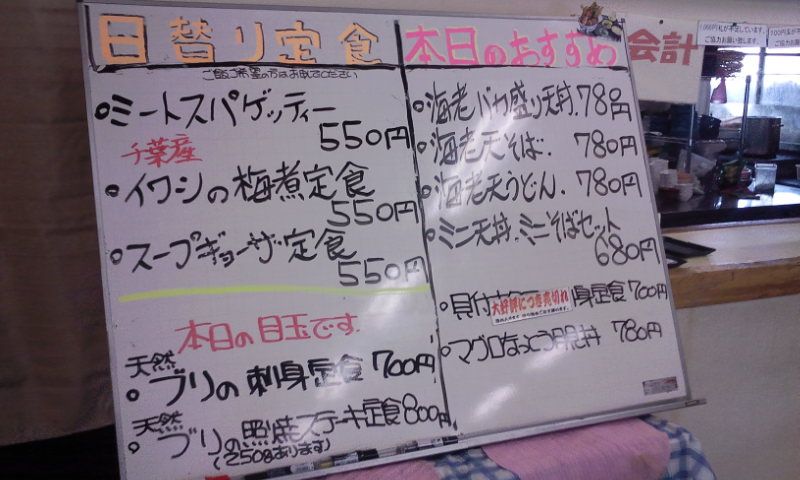 日替り定食
ご飯ご希望の方はお申して下さい
・ミートスパゲッティー
550円
千葉産
・イワシの梅煮定食
550円
・スープギョーザ定食
550円
本日の目玉です
天然
・ブリの刺身定食 700円
天然
・ブリの照焼ステーキ定食 800円
(250gあります)
本日のおすすめ
・海老バカ盛り天丼.780円
・海老天そば. 780円
・海老天うどん. 780円
・ミニ天丼.ミニそばセット
680円
・貝付
大好評につき売切れ
身定食 700円
・マグロなっとう月見丼 780円
会計
ご協力お願い致します。